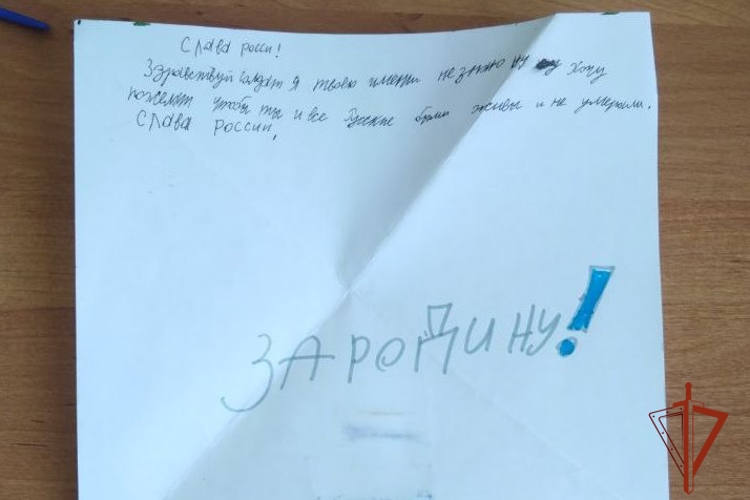 Слава росси!
Здравствуй солдат я твоего имени не знаю ну хочу
пожелат чтобы ты и все Руские были живы и не умерали.
Слава россии,
ЗА РОДИНУ!